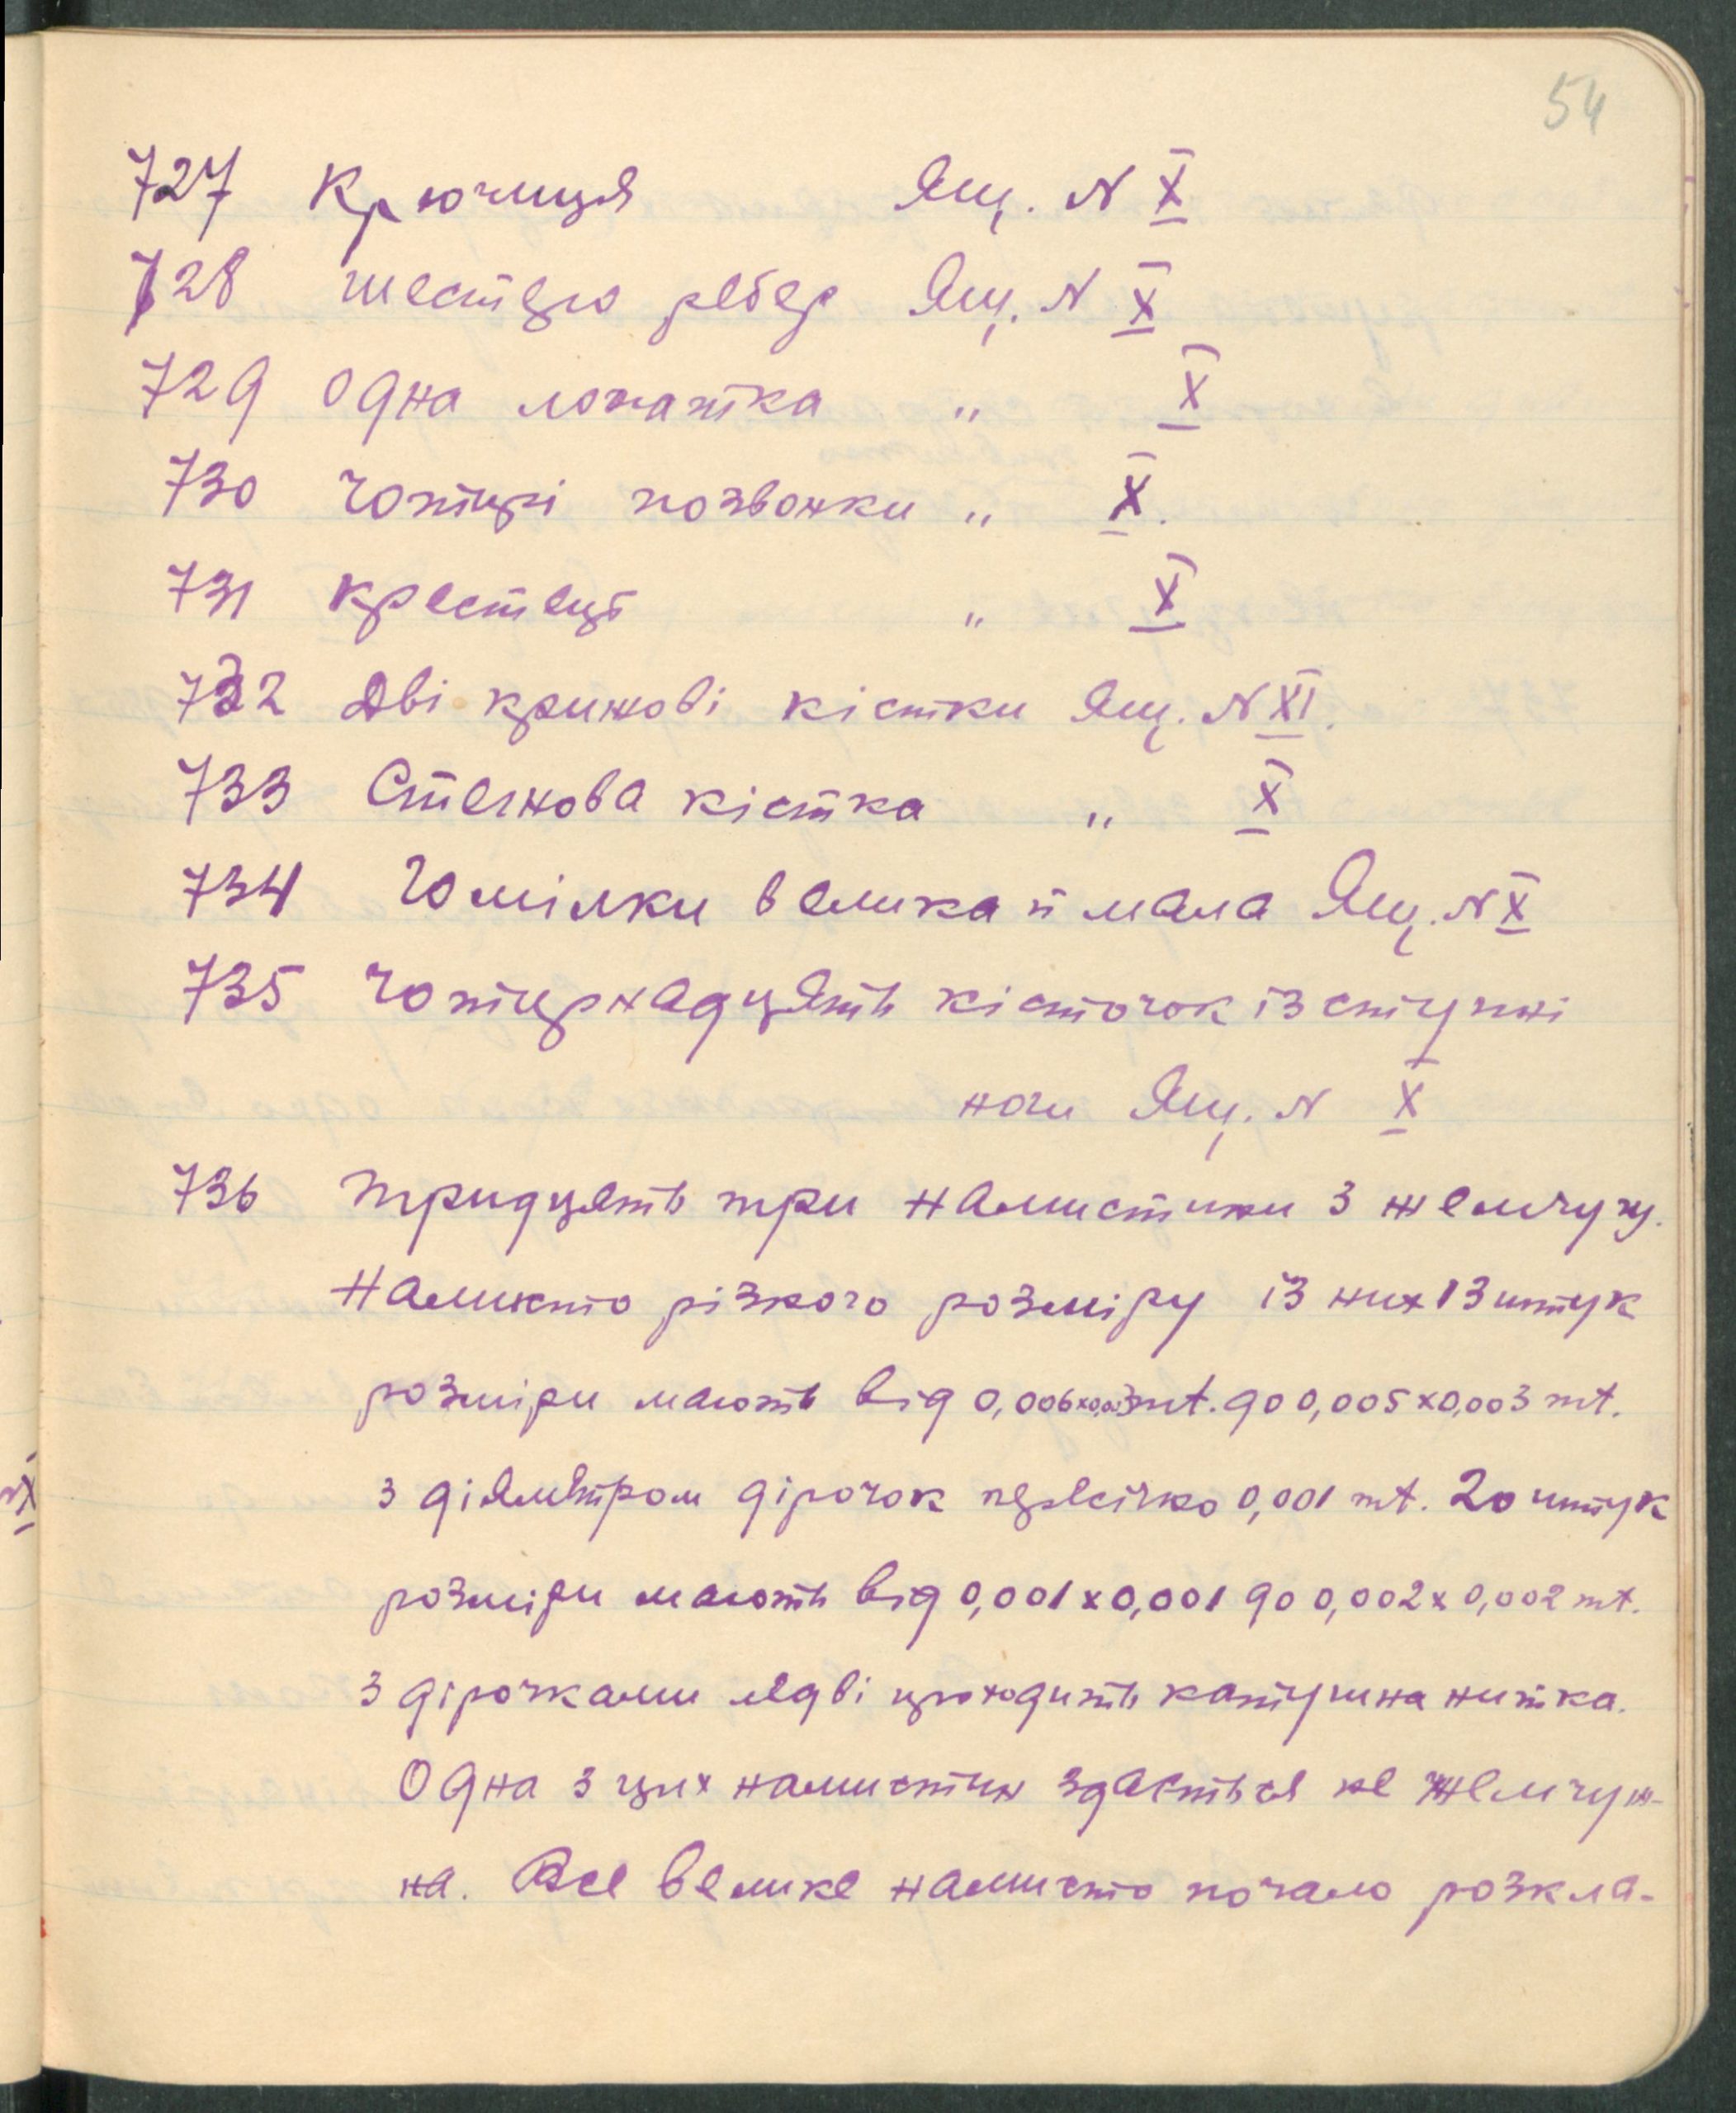 54
727 Крючиця Ящ. N X
728 шестеро ребер Ящ. N X
729 Одна лопатка " X
730 Чотирі позвонки " X.
731 Крестець " X
732 Дві крижові кістки Ящ. N XI.
733 Стегнова кістка " X
734 Гомілки велика й мала Ящ. N X
735 Чотирнадцять кісточок із ступні
ноги Ящ. N X
736 Тридцять три намистини з жемчугу.
Намисто різного розміру із них 13 штук
розміри мають від 0,006x0,003 mt. до 0,005x0,003 mt.
з діяметром дірочок пересічно 0,001 mt. 20 штук
розміри мають від 0,001x0,001 до 0,002x0,002 mt.
з дірочками ледві проходить катушна нитка.
Одна з цих намистин здається не жемчуж-
на. Все велике намисто почало розкла-
X